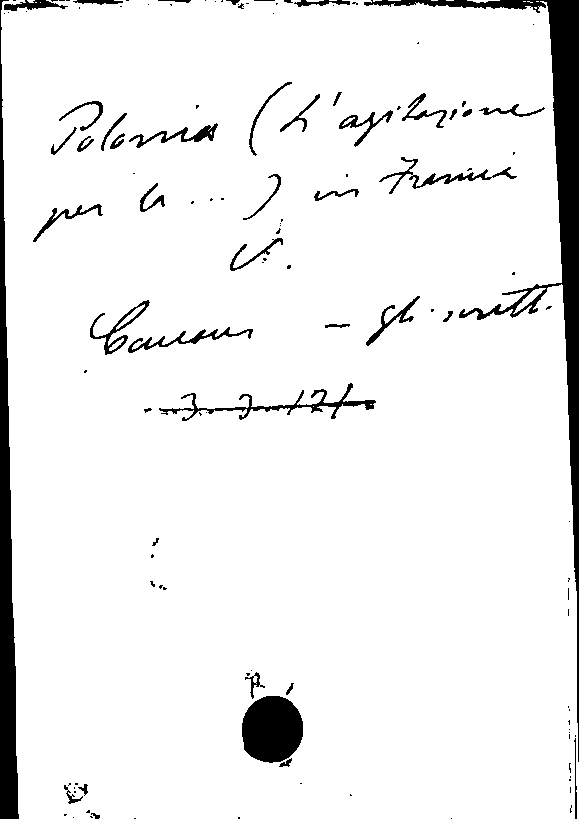 Polonia (L'agitazione
per la ... ) in Francia
V.
– gli scritt.
3. 3. 121